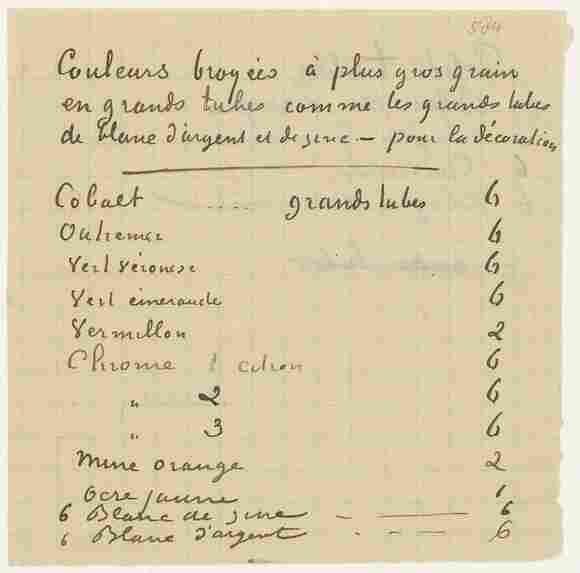 504
Couleurs broyées à plus gros grain
en grands tubes comme les grands tubes
de blanc d'argent et de zinc – pour la décoration
Cobalt .... grands tubes 6
Outremer 6
Vert véronèse 6
Vert émeraude 6
Vermillon 2
Chrome 1 citron 6
" 2 6
" 3 6
Mine orange 2
Ocre jaune 1
6 Blanc de zinc - — 6
6 Blanc d'argent - - — 6